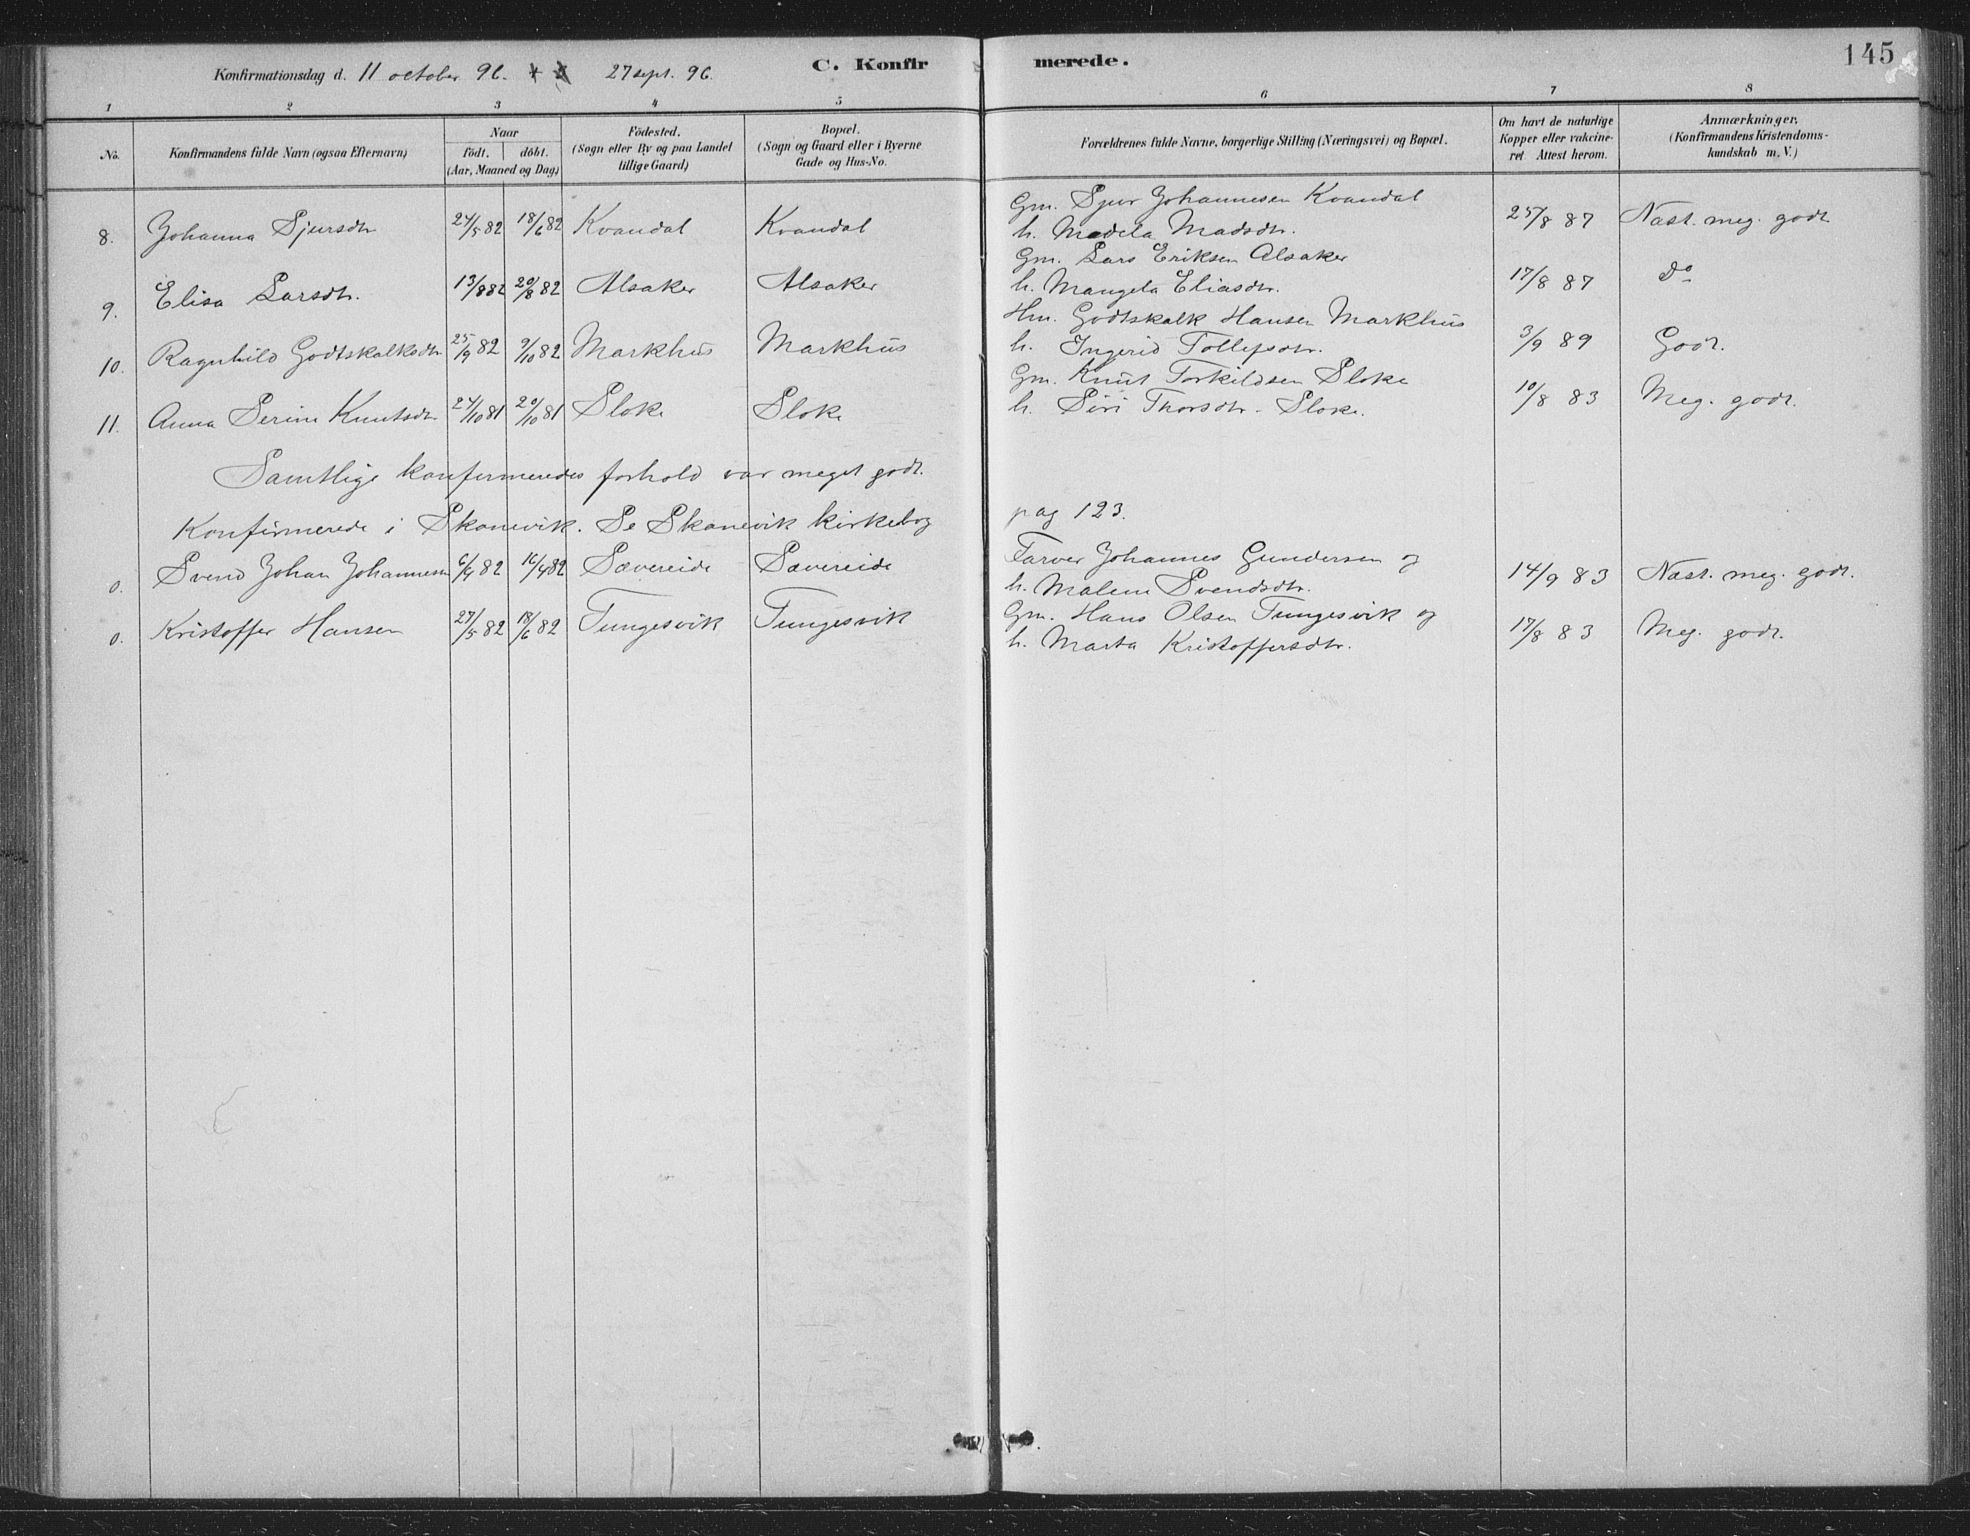 145
Konfirmationsdag d. 11 october 96. 27 sept. 96. C. Konfirmerede.
1 2 3 4 5 6 7 8
No. Konfirmandens fulde Navn (ogsaa Efternavn) Naar födt. döbt. (Aar, Maaned og Dag) Födested. (Sogn eller By og paa Landet tillige Gaard) Bopæl. (Sogn og Gaard eller i Byerne Gade og Hus-No. Forældrenes fulde Navne, borgerlige Stilling (Næringsvei) og Bopæl. Om havt de naturlige Kopper eller vakcineret. Attest herom. Anmærkninger, (Konfirmandens Kristendomskundskab m. V.)
8. Johanna Sjursdtr 24/5 82 18/6 82 Kvandal Kvandal Gm. Sjur Johannesen Kvandal 25/8 87 Næst. meg. godt.
h. Madela Madsdtr.
9. Elisa Larsdtr. 13/8 82 20/8 82 Alsaker Alsaker Gm. Lars Eriksen Alsaker 17/8 87 Do
h. Mangela Eliasdtr.
10. Ragnhild Godtskalksdtr 25/9 82 9/10 82 Markhus Markhus Hm. Godtskalk Hansen Markhus 3/9 89 Godt.
h. Ingerid Tollefsdtr.
11. Anna Serine Knutsdtr 24/10 81 20/10 81 Sloke Sloke Gm. Knut Torkildsen Sloke 10/8 83 Meg. godt.
h. Siri Thorsdtr. Sloke.
Samtlige konfirmeredes forhold var meget godt.
Konfirmerede i Skonevik. Se Skonevik kirkebog pag 123.
0. Svend Johan Johannesen 6/4 82 16/4 82 Sævereide Sævereide Farver Johannes Gundersen og 14/9 83 Næst. meg. godt.
h. Malene Svendsdtr.
0. Kristoffer Hansen 27/5 82 18/6 82 Tungesvik Tungesvik Gm. Hans Olsen Tungesvik og 17/8 83 Meg. godt.
h. Marta Kristoffersdtr.